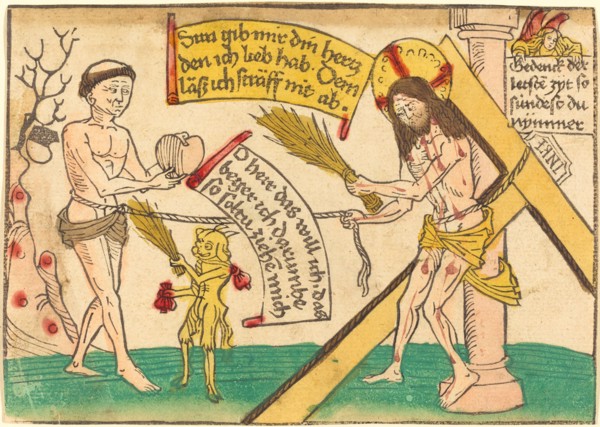 Sun gib mir din hertz
den ich lieb hab. Dem
laß ich sträff nit ab.
O herr das will ich. das
beger ich darumbe
so soltu ziehe mich
Gedenck der
letste zyt so
sündest du
nymmer
INRI